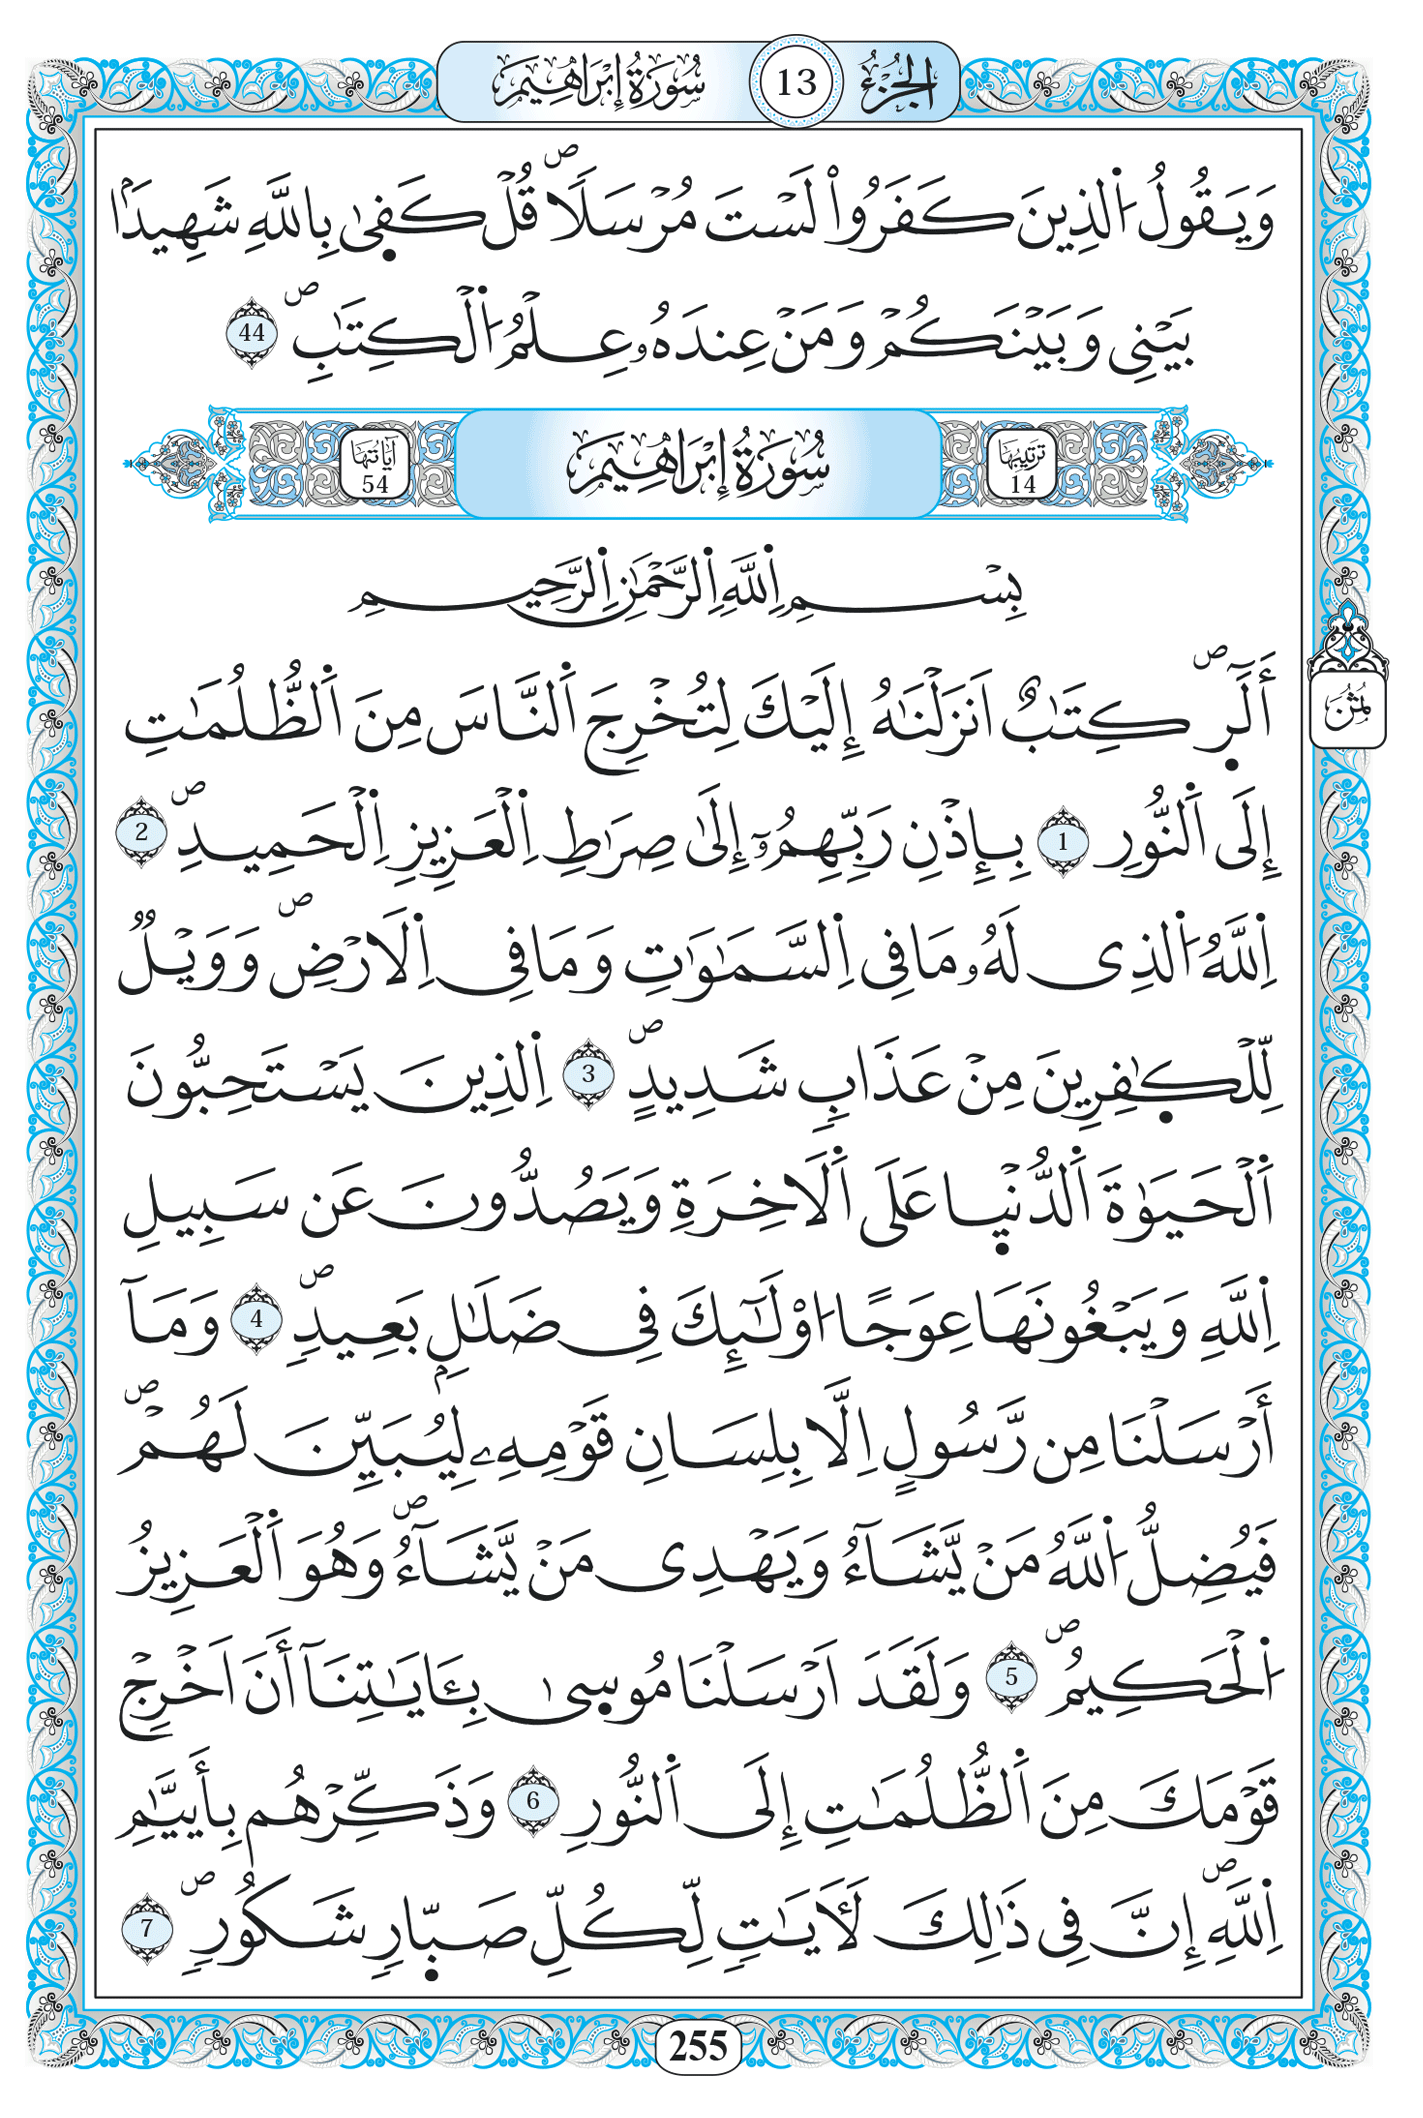 الجزء 13 سورة إبراهيم
وَيَقُولُ اُ۬لذِينَ كَفَرُواْ لَسْتَ مُرْسَلاٗۖ قُلْ كَف۪ىٰ بِاللَّهِ شَهِيداَۢ
بَيْنِي وَبَيْنَكُمْ وَمَنْ عِندَهُۥ عِلْمُ اُ۬لْكِتَٰبِۖ 44
ترتيبها 14 سورة إبراهيم آياتها 54
بِسْمِ اِ۬للَّهِ اِ۬لرَّحْمَٰنِ اِ۬لرَّحِيمِ
أَلَٓر۪ۖ كِتَٰبٌ اَنزَلْنَٰهُ إِلَيْكَ لِتُخْرِجَ اَ۬لنَّاسَ مِنَ اَ۬لظُّلُمَٰتِ
ثمن
إِلَى اَ۬لنُّورِ 1 بِإِذْنِ رَبِّهِمُۥٓ إِلَىٰ صِرَٰطِ اِ۬لْعَزِيزِ اِ۬لْحَمِيدِۖ 2
اِ۬للَّهُ اُ۬لذِى لَهُۥ مَا فِى اِ۬لسَّمَٰوَٰتِ وَمَا فِى اِ۬لَارْضِۖ وَوَيْلٞ
لِّلْكٰ۪فِرِينَ مِنْ عَذَابٖ شَدِيدٍۖ 3 اِ۬لذِينَ يَسْتَحِبُّونَ
اَ۬لْحَيَوٰةَ اَ۬لدُّنْي۪ا عَلَى اَ۬لَاخِرَةِ وَيَصُدُّونَ عَن سَبِيلِ
اِ۬للَّهِ وَيَبْغُونَهَا عِوَجًا اُوْلَٰٓئِكَ فِى ضَلَٰلِۢ بَعِيدٖۖ 4 وَمَآ
أَرْسَلْنَا مِن رَّسُولٍ اِلَّا بِلِسَانِ قَوْمِهِۦ لِيُبَيِّنَ لَهُمْۖ
فَيُضِلُّ اُ۬للَّهُ مَنْ يَّشَآءُ وَيَهْدِى مَنْ يَّشَآءُۖ وَهُوَ اَ۬لْعَزِيزُ
اُ۬لْحَكِيمُۖ 5 وَلَقَدَ اَرْسَلْنَا مُوس۪ىٰ بِـَٔايَٰتِنَآ أَنَ اَخْرِجْ
قَوْمَكَ مِنَ اَ۬لظُّلُمَٰتِ إِلَى اَ۬لنُّورِ 6 وَذَكِّرْهُم بِأَييَّٰمِ
اِ۬للَّهِۖ إِنَّ فِى ذَٰلِكَ لَأٓيَٰتٖ لِّكُلِّ صَبّ۪ارٖ شَكُورٖۖ 7
255